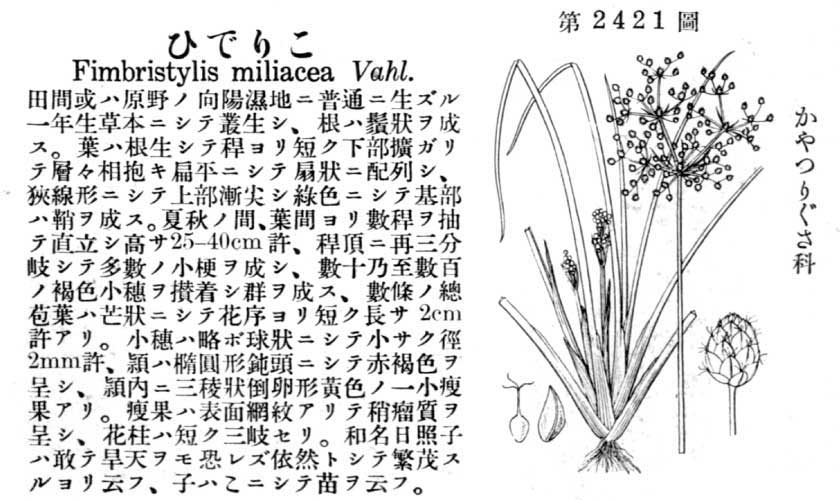 第2421圖
ひでりこ
Fimbristylis miliacea Vahl.
田間或ハ原野ノ向陽濕地ニ普通ニ生ズル
一年生草本ニシテ叢生シ、根ハ鬚狀ヲ成
ス。葉ハ根生シテ稈ヨリ短ク下部擴ガリ
テ層々相抱キ扁平ニシテ扇狀ニ配列シ、
狹線形ニシテ上部漸尖シ綠色ニシテ基部
ハ鞘ヲ成ス。夏秋ノ間、葉間ヨリ數稈ヲ抽
テ直立シ高サ25–40cm許、稈頂ニ再三分
岐シテ多數ノ小梗ヲ成シ、數十乃至數百
ノ褐色小穗ヲ攅着シ群ヲ成ス、數條ノ總
苞葉ハ芒狀ニシテ花序ヨリ短ク長サ2cm
許アリ。小穗ハ略ボ球狀ニシテ小サク徑
2mm許、穎ハ橢圓形鈍頭ニシテ赤褐色ヲ
呈シ、穎內ニ三稜狀倒卵形黃色ノ一小瘦
果アリ。瘦果ハ表面網紋アリテ稍瘤質ヲ
呈シ、花柱ハ短ク三岐セリ。和名日照子
ハ敢テ旱天ヲモ恐レズ依然トシテ繁茂ス
ルヨリ云フ、子ハこニシテ苗ヲ云フ。
かやつりぐさ科